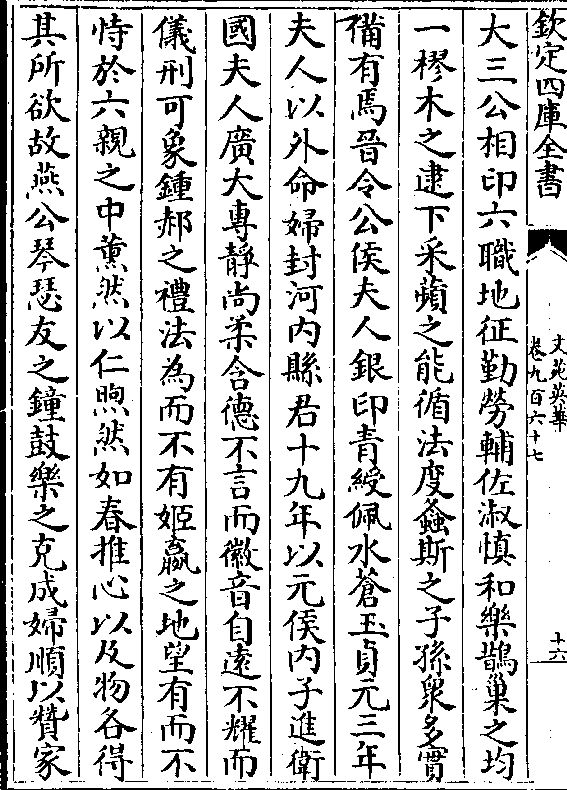 欽定四庫全書
文苑英華
卷九百六十七
十六
大三公相印六職地征勤勞輔佐淑慎和樂鵲巢之均
一樛木之逮下采蘋之能循法度螽斯之子孫衆多實
備有焉晉令公侯夫人銀印青綬佩水蒼玉貞元三年
夫人以外命婦封河内縣君十九年以元侯内子進衛
國夫人廣大專靜尚柔含德不言而徽音自遠不耀而
儀刑可象鍾郝之禮法為而不有姬嬴之地望有而不
恃於六親之中薫然以仁煦然如春推心以及物各得
其所欲故燕公琴瑟友之鐘鼓樂之克成婦順以贊家